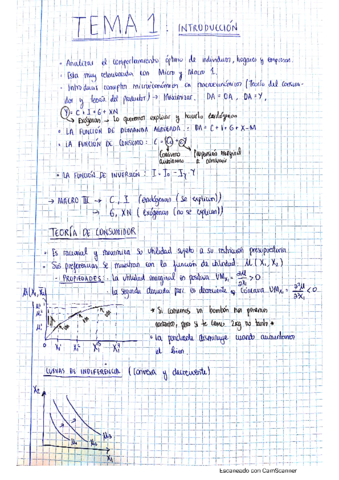 TEMA 1: INTRODUCCIÓN
- Analizar el comportamiento óptimo de individuos, hogares y empresas.
- Esta muy relacionada con Micro y Macro 1.
- Introducir conceptos microeconómicos en macroeconómicos (Teoría del consumi-
dor y Teoría del productor) → Maximizar, DA = OA, DA = Y,
Y = C + I + G + XN
Exógenas: Lo queremos explicar y hacerlo endógenas
- LA FUNCIÓN DE DEMANDA AGREGADA: DA = C + I + G + X - M
- LA FUNCIÓN DE CONSUMO: C =
Consumo autónomo
Propensión marginal a consumir
- LA FUNCIÓN DE INVERSIÓN: I =
→ MACRO III → C, I (endógenas (se explican))
→ G, XN (Exógenas (no se explican))
TEORÍA DE CONSUMIDOR
- Es racional y maximiza su utilidad sujeto a su restricción presupuestaria.
- Sus preferencias se muestran con la función de utilidad: U (X₁, X₂)
- PROPIEDADES: La utilidad marginal es positiva
> 0
- La segunda derivada es decreciente y cóncava
< 0
* Si comemos un bombón nos ponemos
contentos, pero si te comes 2kg no tanto *
- La pendiente disminuye cuando aumentamos
el bien
CURVAS DE INDIFERENCIA (convexa y decreciente)
X₂
X₁
Escaneado con CamScanner